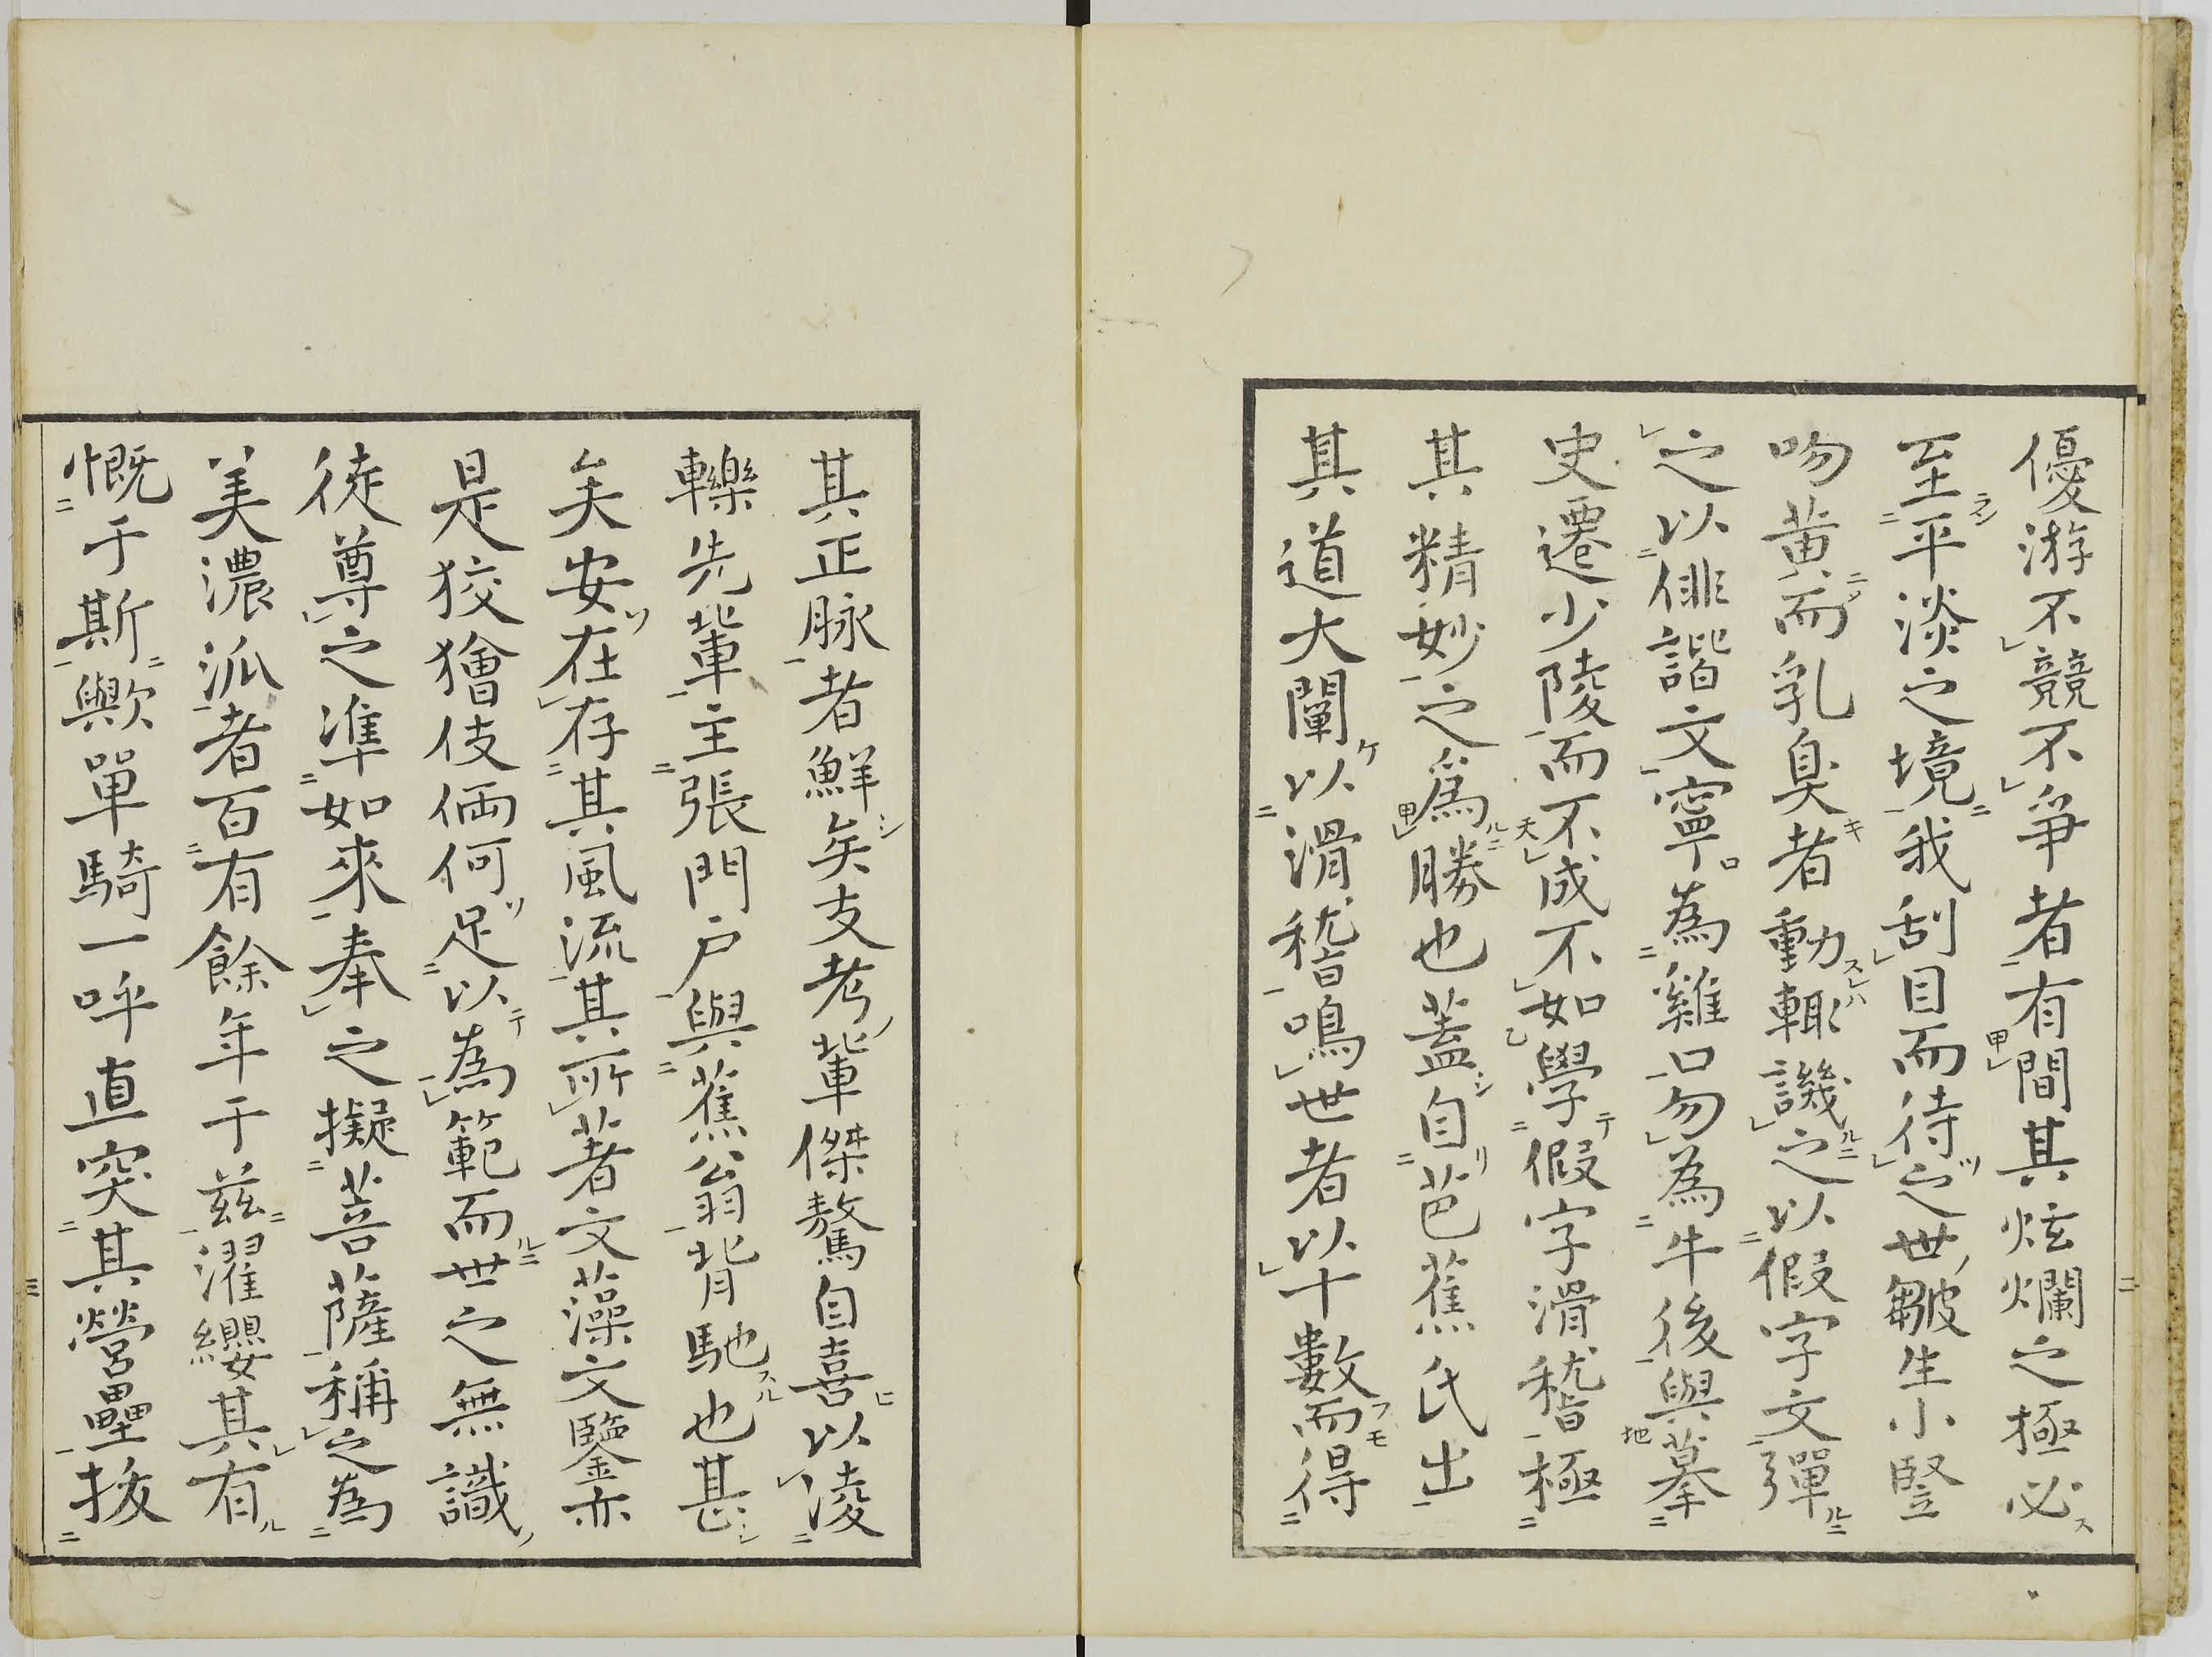 優游不競不爭者有間其炫爛之極必
至平淡之境我刮目而待之世皺生小豎
吻黄而乳臭者動輙譏之以假字文彈
之以俳諧文寧為雞口勿為牛後與摹
史遷少陵而不成不如學假字滑稽極
其精妙之爲勝也蓋自芭蕉氏出
其道大闡以滑稽鳴世者以十數而得
二
其正脉者鮮矣支考輩傑驁自喜以凌
轢先輩主張門戸與蕉翁背馳也甚
矣安在存其風流其所著文藻文鑒亦
是狡獪伎倆何足以為範而世之無識
徒尊之準如來奉之擬菩薩稱之為
美濃派者百有餘年于茲濯纓其有
慨于斯歟單騎一呼直突其營壘拔
三